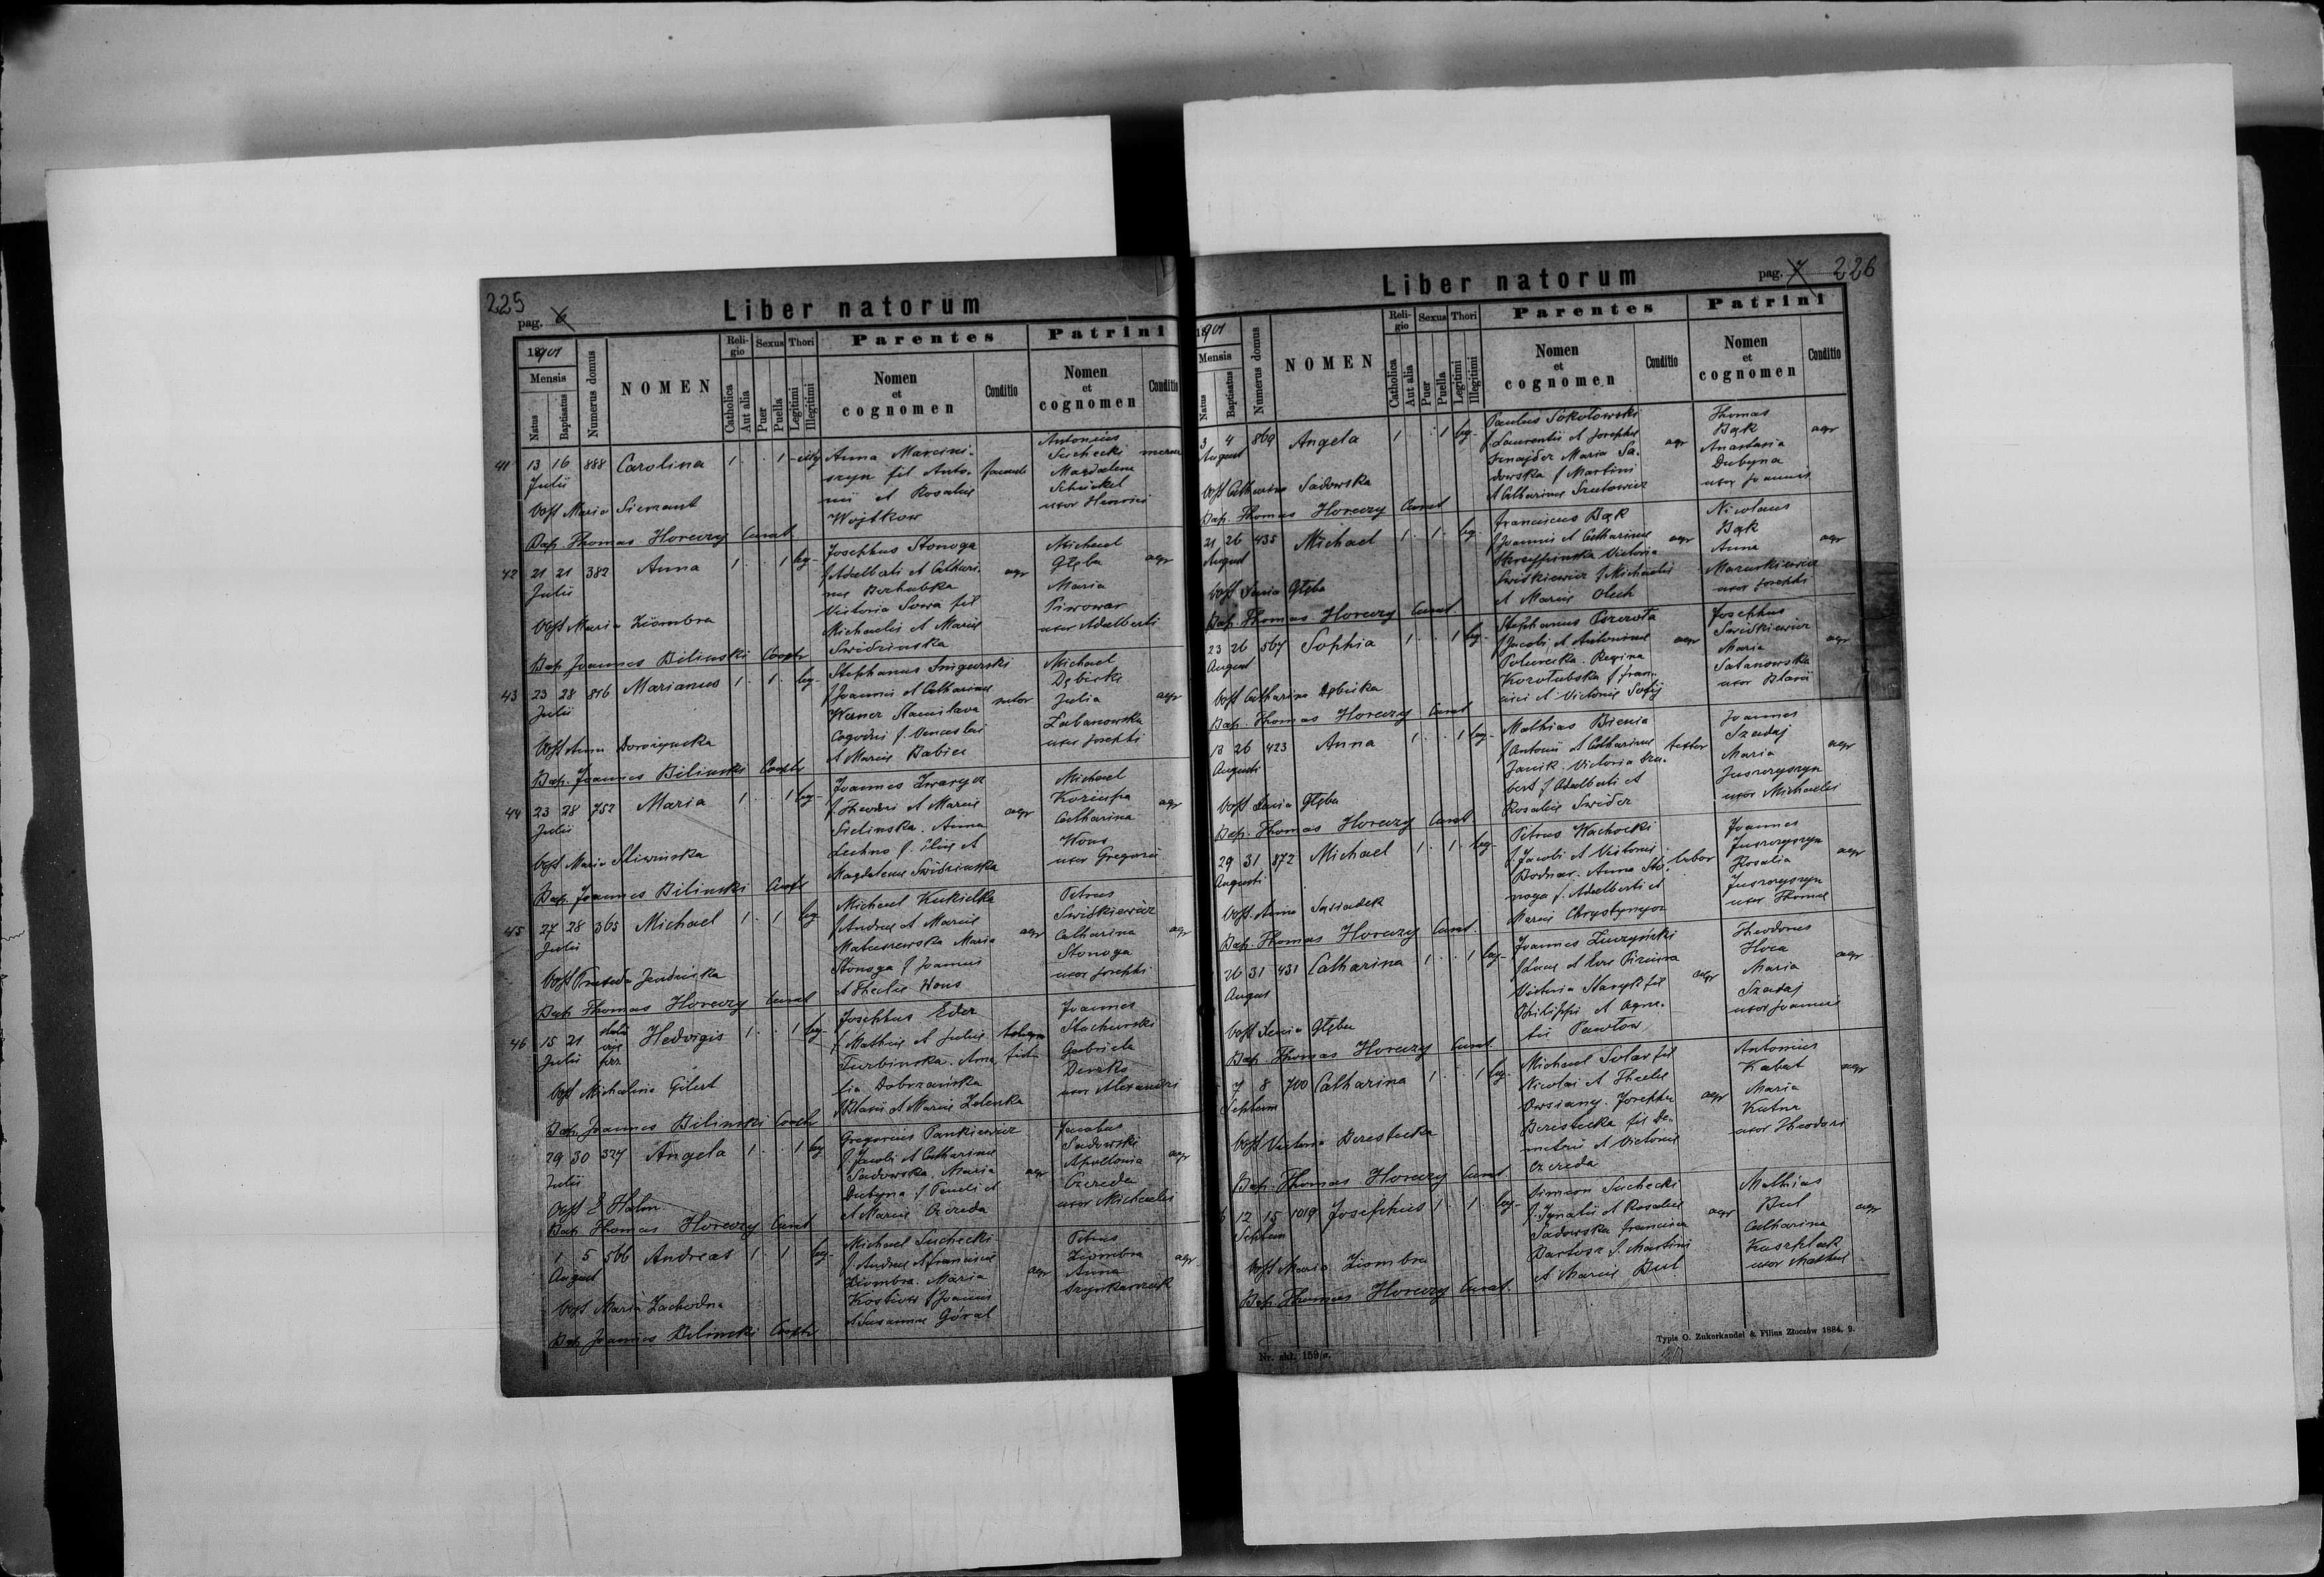 225
pag. 6
Liber natorum
1901
Mensis
Natus
Baptisatus
Numerus domus
NOMEN
Religio
Catholica
Aut alia
Sexus
Puer
Puella
Thori
Legitimi
Illegitimi
Parentes
Nomen
et
cognomen
Conditio
Patrini
Nomen
et
cognomen
Conditio
41 13 16 888 Carolina 1 1 Anna Marcini- Antonius
Julii szyn fil Anto- Suchecki
nii et Rosaliae Magdalena
Obst Maria Siemrant Wojtkow uxor Henrici
Bap. Thomas Horeczy Curat
42 21 21 382 Anna 1 1 leg- Josephus Stonoga Michael
Julii f Adalberti et Cathari- agr Głęba agr
nae Maria
Obst Maria Ziombra Victoria Sowa fil Piwowar
Michaelis et Mariae uxor Adalberti
Bap Joannes Bilinski Cooptr Swidzinska
43 23 28 816 Marianus 1 1 leg- Stephanus Michael
Julii f Joannis et Catharinae sutor Dębicki agr
Werner Stanislava Julia
Obst Anna f. Venceslai Łabanowska
et Mariae Babicz uxor Josephi
Bap. Joannes Bilinski Cooptr
44 23 28 752 Maria 1 1 leg- Joannes Zwarycz Michael
Julii f. Theodori et Mariae agr Koziupa agr
Sielinska. Anna Catharina
Obst Maria Sliwinska Lechno f. Eliae et Wons
Magdalenae Swidzinska uxor Gregorii
Bap. Joannes Bilinski Cooptr
45 27 28 365 Michael 1 1 leg Michael Kukielka Petrus
Julii f Andreae et Mariae agr Swiskiewicz agr
Matuszewska Maria Catharina
Stonoga f Joannis Stonoga
et Theclae Wons uxor Josephi
Bap Thomas Horeczy Curat
46 15 21 Hedvigis 1 1 leg- Josephus Eder Joannes
Julii f Mathiae et Juliae Stachurski
Turbinska. Ama- Gabriela
Obst Michalina Gilert lia Dobrzańska
f Blasii et Mariae Zelenka uxor Alexandri
Bap Joannes Bilinski Cooptr
29 30 327 Angela 1 1 leg Gregorius Pankiewicz Jacobus
Julii f Jacobi et Catharinae agr Sadowski agr
Sadowska. Maria Apollonia
Obst E Hahn Dubyna f Pauli et Czereda
et Mariae Czereda uxor Michaelis
Bap Thomas Horeczy Curat
1 5 566 Andreas 1 1 leg- Michael Suchecki Petrus
August f. Andreae et Franciscae agr Ziombra agr
Ziombra. Maria Anna
Obst Maria Zachodna Kostiow f Joannis
et Susannae Góral
Bap Joannes Bilinski Cooptr
pag. 7 226
Liber natorum
1901
Mensis
Natus
Baptisatus
Numerus domus
NOMEN
Religio
Catholica
Aut alia
Sexus
Puer
Puella
Thori
Legitimi
Illegitimi
Parentes
Nomen
et
cognomen
Conditio
Patrini
Nomen
et
cognomen
Conditio
3 4 869 Angela 1 1 leg- Paulus Sokołowski Thomas
August f. Laurentii et Josephae agr Bąk agr
Sznajder Maria Sa- Anastasia
Obst Catharina Sadowska dowska f Martini Dubyna
et Catharinae Szutowicz uxor Joannis
Bap. Thomas Horeczy Curat
21 26 435 Michael 1 1 leg- Franciscus Bąk Nicolaus
August f Joannis et Catharinae agr Bąk agr
Victoria Anna
Obst Xenia Głęba Swiskiewicz f Michaelis Mazurkiewicz
et Mariae Olech uxor Josephi
Bap. Thomas Horeczy Curat.
23 26 567 Sophia 1 1 leg- Stephanus Josephus
August f Jacobi et Antoninae agr Swiskiewicz agr
Regina Maria
Obst Catharina Dębicka f Fran- Satanowska
cisci et Victoriae uxor Blasii
Bap. Thomas Horeczy Curat
13 26 423 Anna 1 1 leg- Mathias Bienia Joannes
Augusti f Antonii et Catharinae textor Szadaj agr
Janik. Victoria Maria
Obst Xenia Głęba f Adalberti et Juszczyszyn
Rosaliae Swider uxor Michaelis
Bap. Thomas Horeczy Curat
29 31 872 Michael 1 1 leg- Petrus Wachocki Joannes
Augusti f. Jacobi et Victoriae labor Juszczyszyn agr
Bodnar. Anna Sto- Rosalia
Obst. Anna Sąsiadek noga f. Adalberti et Juszczyszyn
Mariae Chrystynycz uxor Thomae
Bap. Thomas Horeczy Curat.
26 31 431 Catharina 1 1 leg- Joannes Łuczyński Theodorus
August f Lucae et Evae agr Hoca agr
Victoria fil Maria
Obst Xenia Głęba Philippi et Agne- Szadaj
tis Pawłow uxor Joannis
Bap Thomas Horeczy Curat
7 8 700 Catharina 1 1 leg- Michael Solar fil Antonius
Septem Nicolai et Theclae agr Kabat agr
Owsiany. Josepha Maria
Obst Victoria Berestecka Berestecka fil De- Kutna
metrii et Victoriae uxor Theodori
Czereda
Bap. Thomas Horeczy Curat
12 15 1019 Josephus 1 1 leg- Simeon Suchecki Mathias
Septem f. Ignatii et Rosaliae agr Bul agr
Sadowska Francisca Catharina
Obst Maria Ziombra Bartosz f. Martini
et Mariae Bul uxor Mathiae
Bap. Thomas Horeczy Curat.
Nr. skł. 159/a.
Typis O. Zukerkandel & Filius Złoczów 1884. 9.